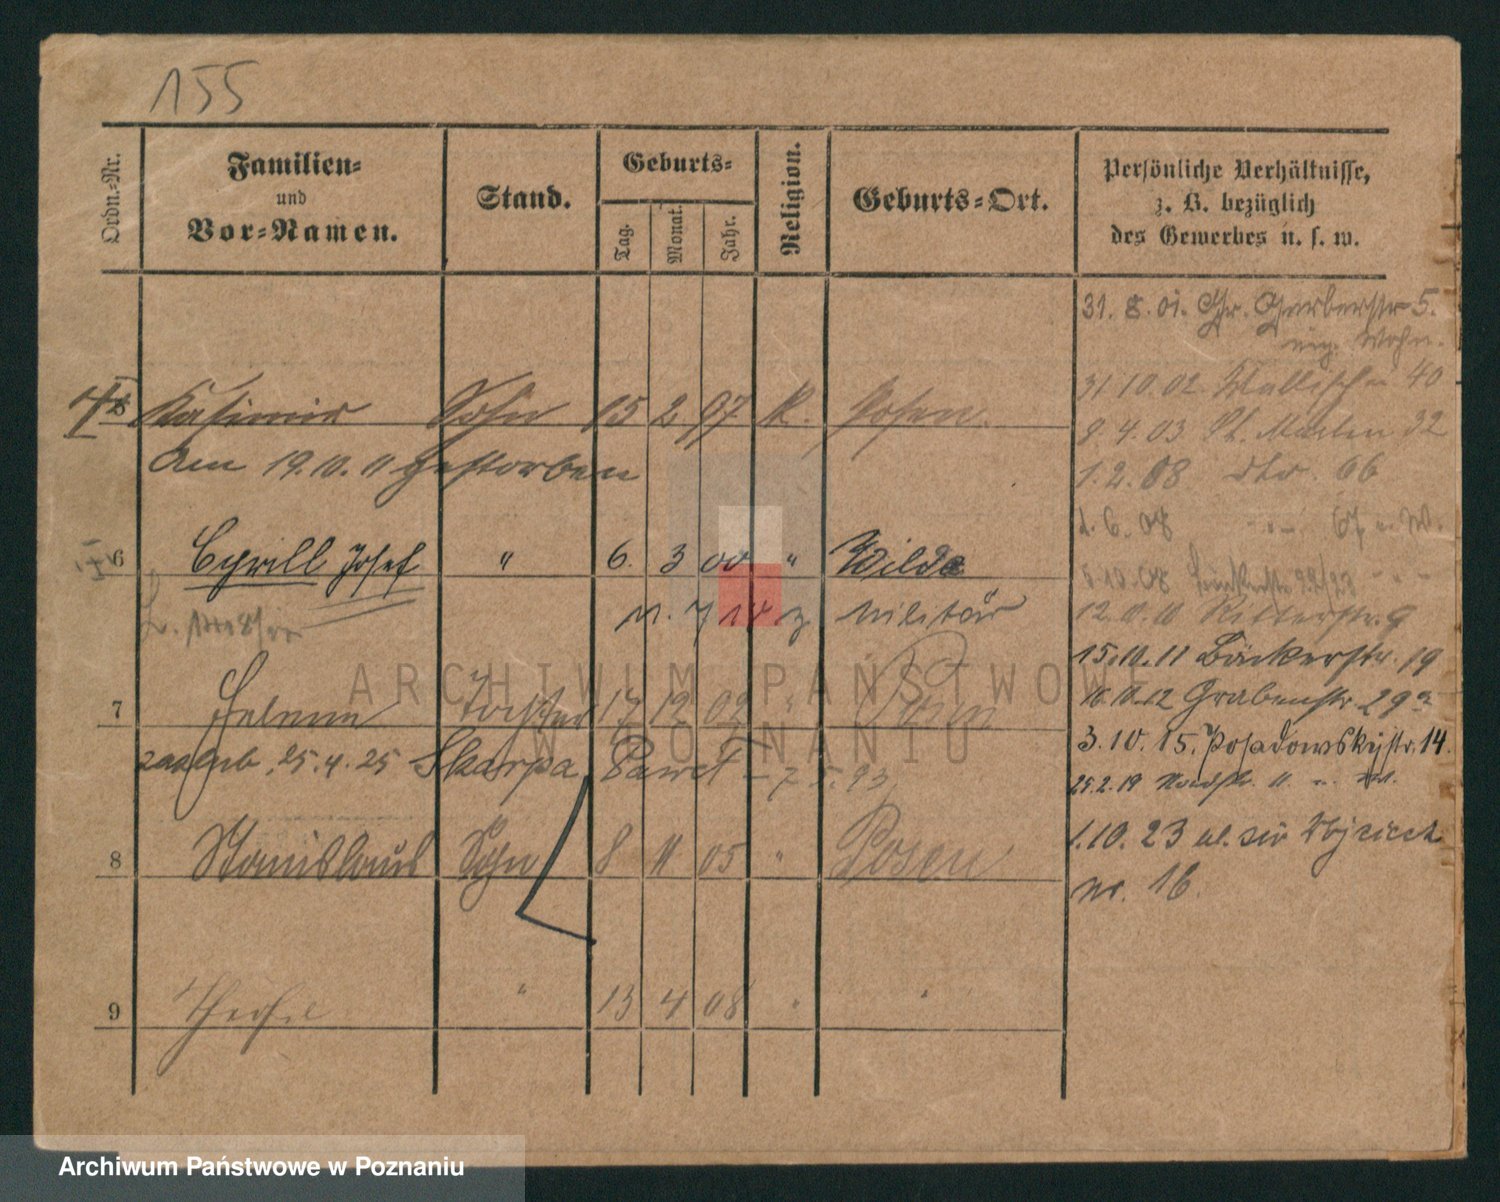 155
Ordn.-Nr.
Familien-
und
Vor-Namen.
Stand.
Geburts-
Tag.
Monat.
Jahr.
Religion.
Geburts-Ort.
Persönliche Verhältnisse,
z. B. bezüglich
des Gewerbes u. s. w.
31. 8. 01. Gr. Gerberstr 5.
Wohn.
31 10. 02 Wallischei 40
Kasimir Sohn 15 2 97 K. Posen.
8. 4. 03 St. Martin 32
Am 19. 10. 11 gestorben
1. 2. 08 dto. 66
1. 6. 08 " 67 u. W.
6 Cyrill Josef " 6. 3 00 " Wilda
12. 11. 10 Ritterstr. 9
z. Militär
15. 10. 11 Bäckerstr. 19
7 Helene Tochter 17 12 02 " Posen
16. 11. 12 Grabenstr. 29a
3. 10. 15. Posadowskystr. 14.
zaślub. 25. 4. 25 Skarpa Paweł – 7. 5. 93
25. 2. 19
8 Stanislaus Sohn 8 11 05 " Posen
1. 10. 23 ul.
nr. 16.
9 " 13 4 08 " "
ARCHIWUM PAŃSTWOWE
W POZNANIU
Archiwum Państwowe w Poznaniu